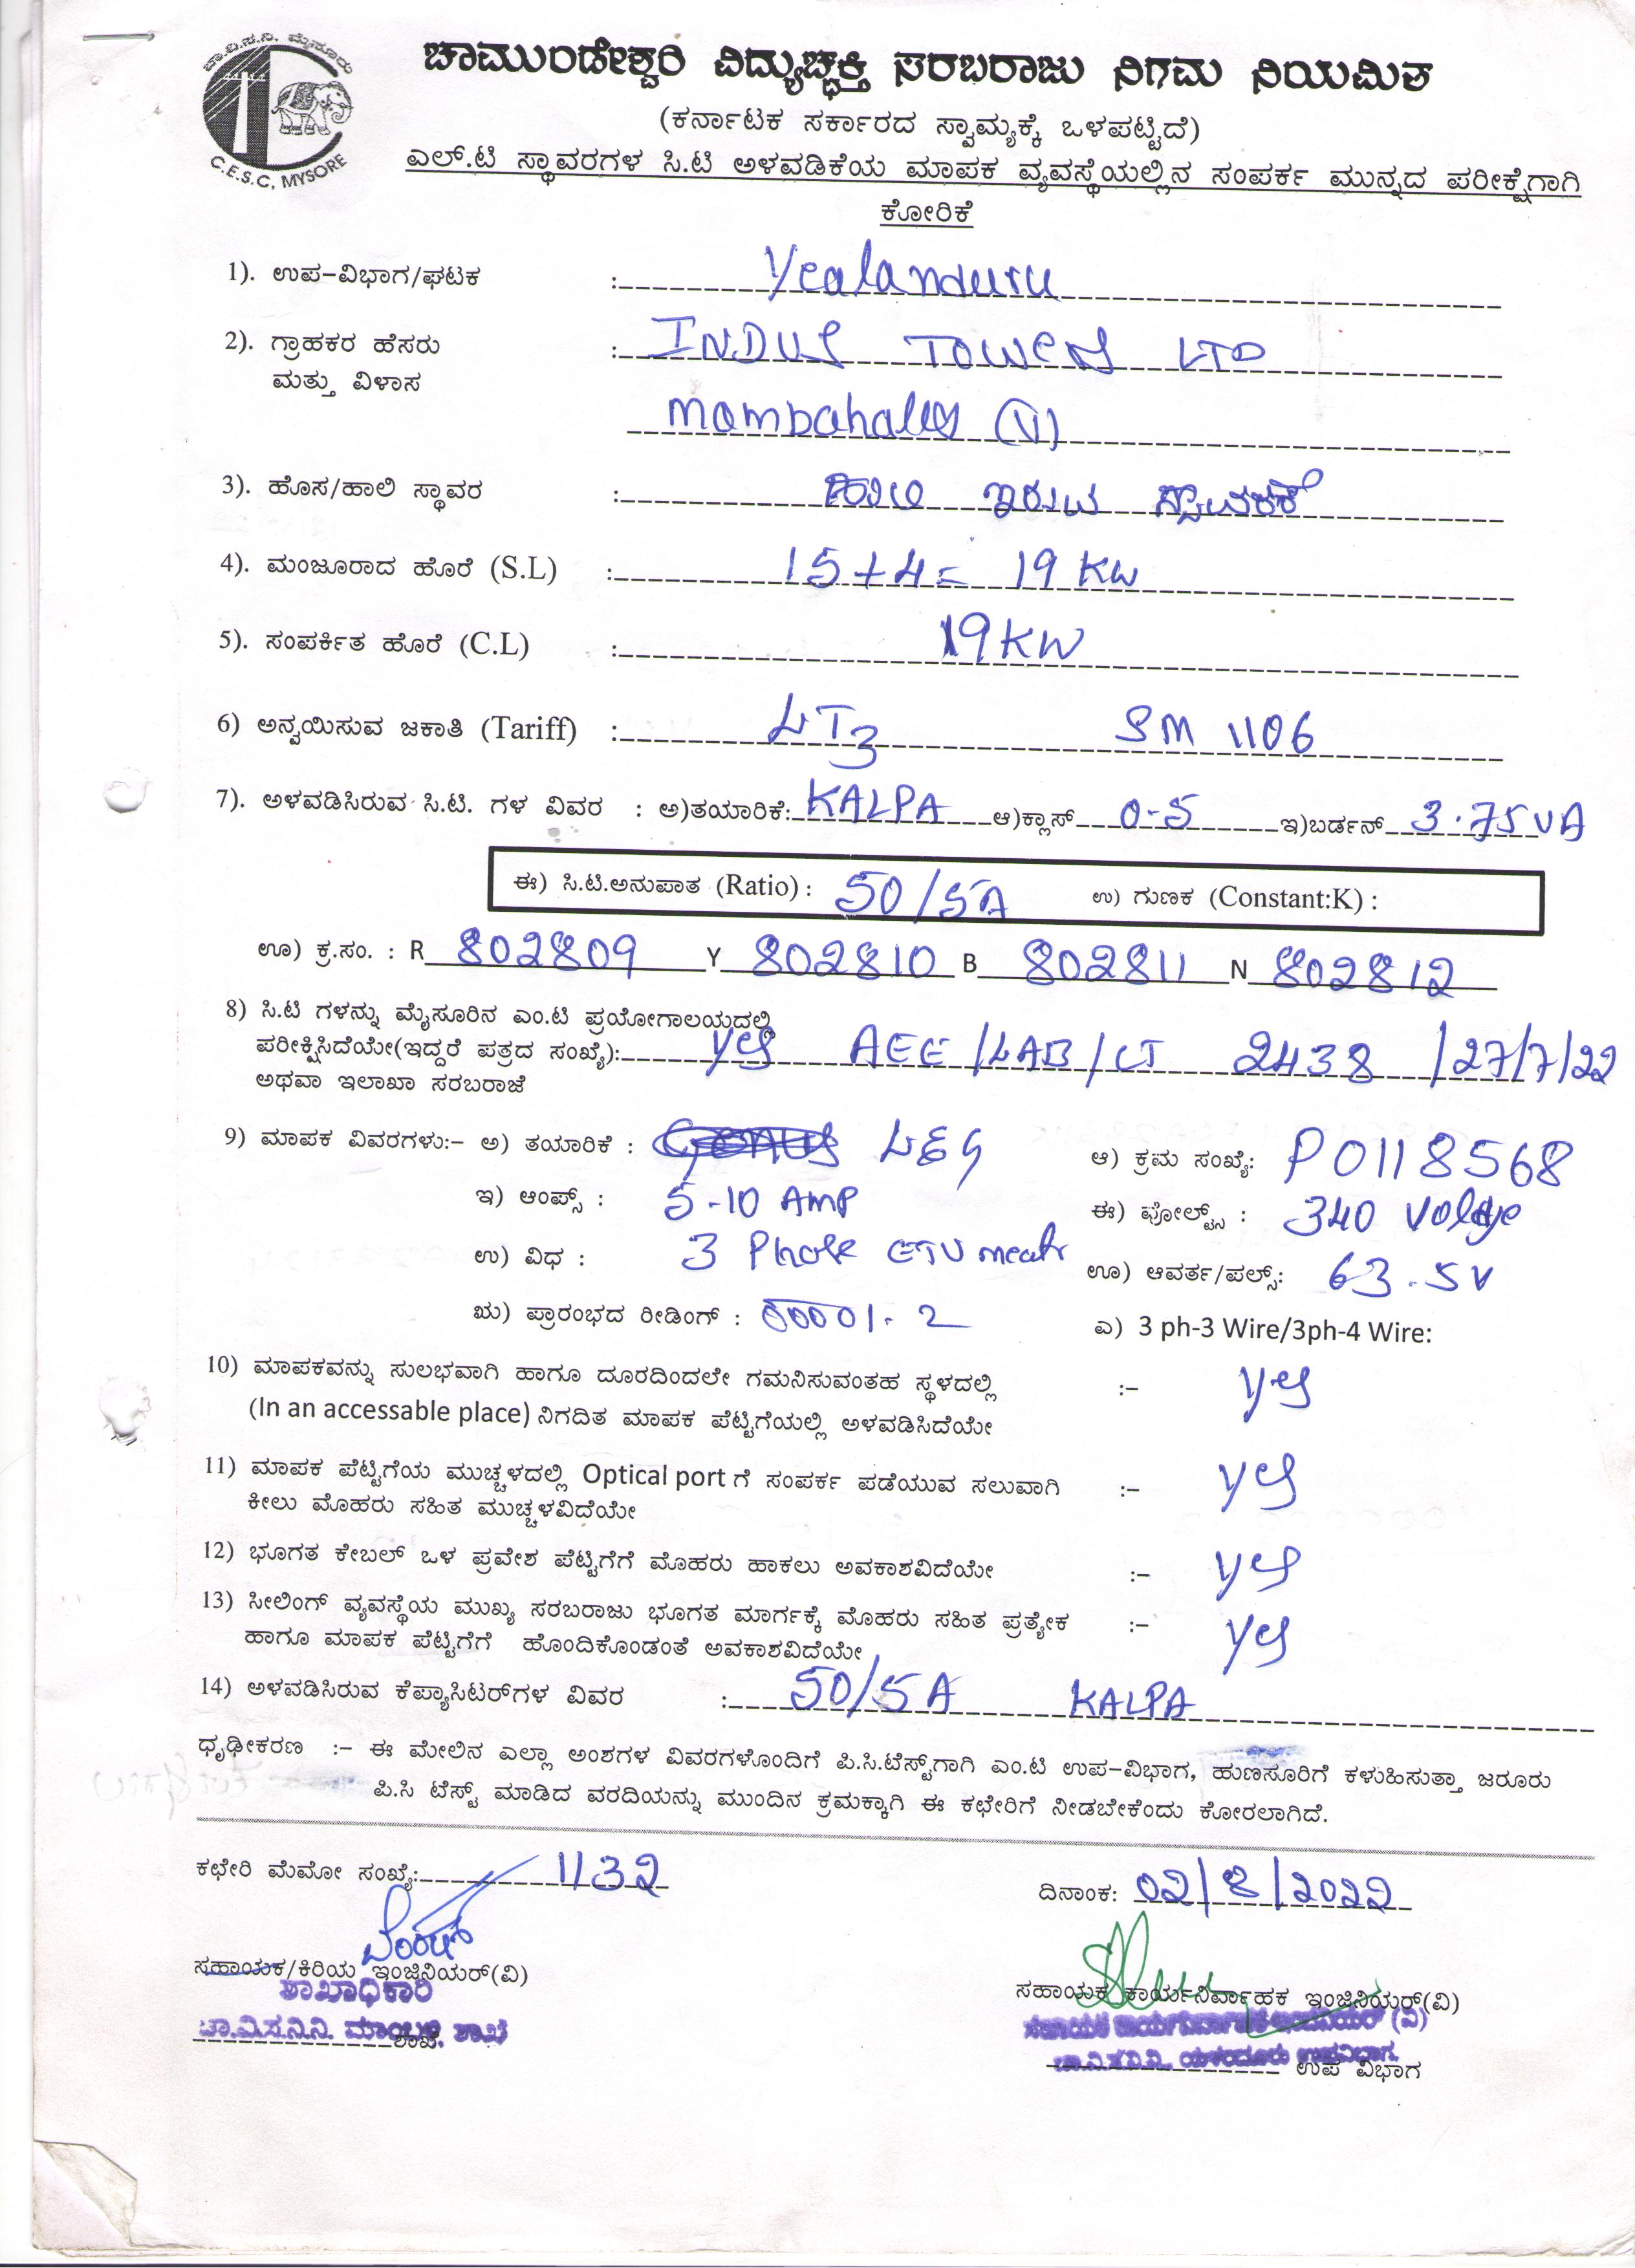 ಚಾ.ವಿ.ಸ.ನಿ. ಮೈಸೂರು
C.E.S.C, MYSORE
ಚಾಮುಂಡೇಶ್ವರಿ ವಿದ್ಯುಚ್ಛಕ್ತಿ ಸರಬರಾಜು ನಿಗಮ ನಿಯಮಿತ
(ಕರ್ನಾಟಕ ಸರ್ಕಾರದ ಸ್ವಾಮ್ಯಕ್ಕೆ ಒಳಪಟ್ಟಿದೆ)
ಎಲ್.ಟಿ ಸ್ಥಾವರಗಳ ಸಿ.ಟಿ ಅಳವಡಿಕೆಯ ಮಾಪಕ ವ್ಯವಸ್ಥೆಯಲ್ಲಿನ ಸಂಪರ್ಕ ಮುನ್ನದ ಪರೀಕ್ಷೆಗಾಗಿ
ಕೋರಿಕೆ
1). ಉಪ-ವಿಭಾಗ/ಘಟಕ : Yealanduru
2). ಗ್ರಾಹಕರ ಹೆಸರು : INDUS TOWERS LTD
ಮತ್ತು ವಿಳಾಸ
Mambahally (V)
3). ಹೊಸ/ಹಾಲಿ ಸ್ಥಾವರ : ಹಾಲಿ ಇರುವ ಸ್ಥಾವರಕ್ಕೆ
4). ಮಂಜೂರಾದ ಹೊರೆ (S.L) : 15+4= 19 KW
5). ಸಂಪರ್ಕಿತ ಹೊರೆ (C.L) : 19KW
6) ಅನ್ವಯಿಸುವ ಜಕಾತಿ (Tariff) : LT3 SM 1106
7). ಅಳವಡಿಸಿರುವ ಸಿ.ಟಿ. ಗಳ ವಿವರ : ಅ)ತಯಾರಿಕೆ: KALPA ಆ)ಕ್ಲಾಸ್ 0-5 ಇ)ಬರ್ಡನ್ 3.75VA
ಈ) ಸಿ.ಟಿ.ಅನುಪಾತ (Ratio) : 50/5A ಉ) ಗುಣಕ (Constant:K) :
ಊ) ಕ್ರ.ಸಂ. : R 802809 Y 802810 B 802811 N 802812
8) ಸಿ.ಟಿ ಗಳನ್ನು ಮೈಸೂರಿನ ಎಂ.ಟಿ ಪ್ರಯೋಗಾಲಯದಲ್ಲಿ
ಪರೀಕ್ಷಿಸಿದೆಯೇ(ಇದ್ದರೆ ಪತ್ರದ ಸಂಖ್ಯೆ): yes AEE/LAB/CT 2438 /27/7/22
ಅಥವಾ ಇಲಾಖಾ ಸರಬರಾಜೆ
9) ಮಾಪಕ ವಿವರಗಳು:- ಅ) ತಯಾರಿಕೆ : L&G ಆ) ಕ್ರಮ ಸಂಖ್ಯೆ: P0118568
ಇ) ಆಂಪ್ಸ್ : 5-10 AMP ಈ) ವೋಲ್ಟ್ಸ್ : 340 Voltage
ಉ) ವಿಧ : 3 Phase ETV ಊ) ಆವರ್ತ/ಪಲ್ಸ್: 63.5V
ಋ) ಪ್ರಾರಂಭದ ರೀಡಿಂಗ್ : 00001.2 ಎ) 3 ph-3 Wire/3ph-4 Wire:
10) ಮಾಪಕವನ್ನು ಸುಲಭವಾಗಿ ಹಾಗೂ ದೂರದಿಂದಲೇ ಗಮನಿಸುವಂತಹ ಸ್ಥಳದಲ್ಲಿ :- yes
(In an accessable place) ನಿಗದಿತ ಮಾಪಕ ಪೆಟ್ಟಿಗೆಯಲ್ಲಿ ಅಳವಡಿಸಿದೆಯೇ
11) ಮಾಪಕ ಪೆಟ್ಟಿಗೆಯ ಮುಚ್ಚಳದಲ್ಲಿ Optical port ಗೆ ಸಂಪರ್ಕ ಪಡೆಯುವ ಸಲುವಾಗಿ :- yes
ಕೀಲು ಮೊಹರು ಸಹಿತ ಮುಚ್ಚಳವಿದೆಯೇ
12) ಭೂಗತ ಕೇಬಲ್ ಒಳ ಪ್ರವೇಶ ಪೆಟ್ಟಿಗೆಗೆ ಮೊಹರು ಹಾಕಲು ಅವಕಾಶವಿದೆಯೇ :- yes
13) ಸೀಲಿಂಗ್ ವ್ಯವಸ್ಥೆಯ ಮುಖ್ಯ ಸರಬರಾಜು ಭೂಗತ ಮಾರ್ಗಕ್ಕೆ ಮೊಹರು ಸಹಿತ ಪ್ರತ್ಯೇಕ :- yes
ಹಾಗೂ ಮಾಪಕ ಪೆಟ್ಟಿಗೆಗೆ ಹೊಂದಿಕೊಂಡಂತೆ ಅವಕಾಶವಿದೆಯೇ
14) ಅಳವಡಿಸಿರುವ ಕೆಪ್ಯಾಸಿಟರ್‌ಗಳ ವಿವರ : 50/5A KALPA
ಧೃಢೀಕರಣ :- ಈ ಮೇಲಿನ ಎಲ್ಲಾ ಅಂಶಗಳ ವಿವರಗಳೊಂದಿಗೆ ಪಿ.ಸಿ.ಟೆಸ್ಟ್‌ಗಾಗಿ ಎಂ.ಟಿ ಉಪ-ವಿಭಾಗ, ಹುಣಸೂರಿಗೆ ಕಳುಹಿಸುತ್ತಾ ಜರೂರು
ಪಿ.ಸಿ ಟೆಸ್ಟ್ ಮಾಡಿದ ವರದಿಯನ್ನು ಮುಂದಿನ ಕ್ರಮಕ್ಕಾಗಿ ಈ ಕಛೇರಿಗೆ ನೀಡಬೇಕೆಂದು ಕೋರಲಾಗಿದೆ.
ಕಛೇರಿ ಮೆಮೋ ಸಂಖ್ಯೆ: 1132 ದಿನಾಂಕ: 02/8/2022
ಸಹಾಯಕ/ಕಿರಿಯ ಇಂಜಿನಿಯರ್(ವಿ) ಸಹಾಯಕ ಕಾರ್ಯನಿರ್ವಾಹಕ ಇಂಜಿನಿಯರ್(ವಿ)
ಶಾಖಾಧಿಕಾರಿ ಸಹಾಯಕ ಕಾರ್ಯನಿರ್ವಾಹಕ ಇಂಜಿನಿಯರ್ (ವಿ)
ಚಾ.ವಿ.ಸ.ನಿ.ನಿ. ಮಾಂಬಳ್ಳಿ ಶಾಖೆ ಚಾ.ವಿ.ಸ.ನಿ.ನಿ. ಯಳಂದೂರು ಉಪವಿಭಾಗ.
ಶಾಖೆ. ಉಪ ವಿಭಾಗ